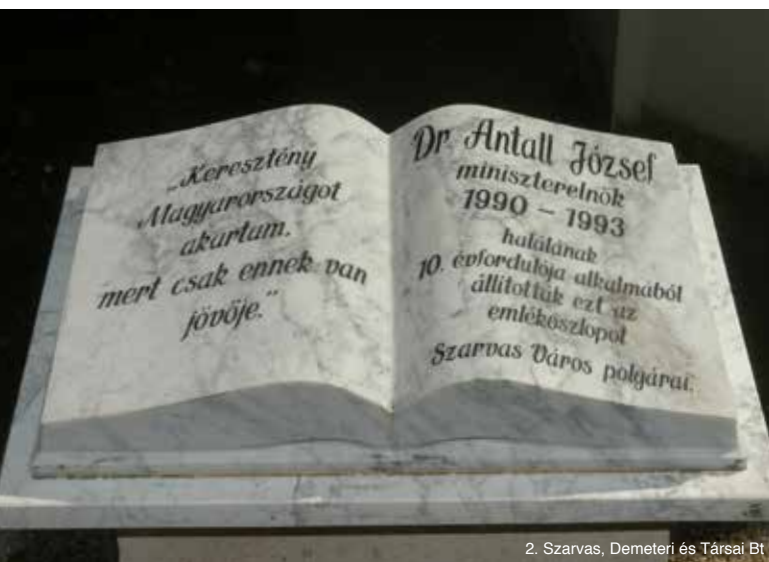 „Keresztény
Magyarországot
akartam,
mert csak ennek van
jövője.”
Dr. Antall József
miniszterelnök
1990 – 1993
halálának
10. évfordulója alkalmából
állították ezt az
emlékoszlopot
Szarvas Város polgárai.
2. Szarvas, Demeteri és Társai Bt